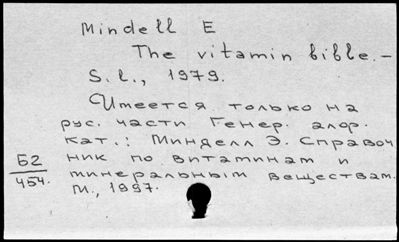 Mindell E
The vitamin bible. –
S. l., 1979.
Имеется только на
рус. части Генер. алф.
кат.: Минделл Э. Справоч
ник по витаминам и
минеральным веществам.
М., 1997.
Б2
454.